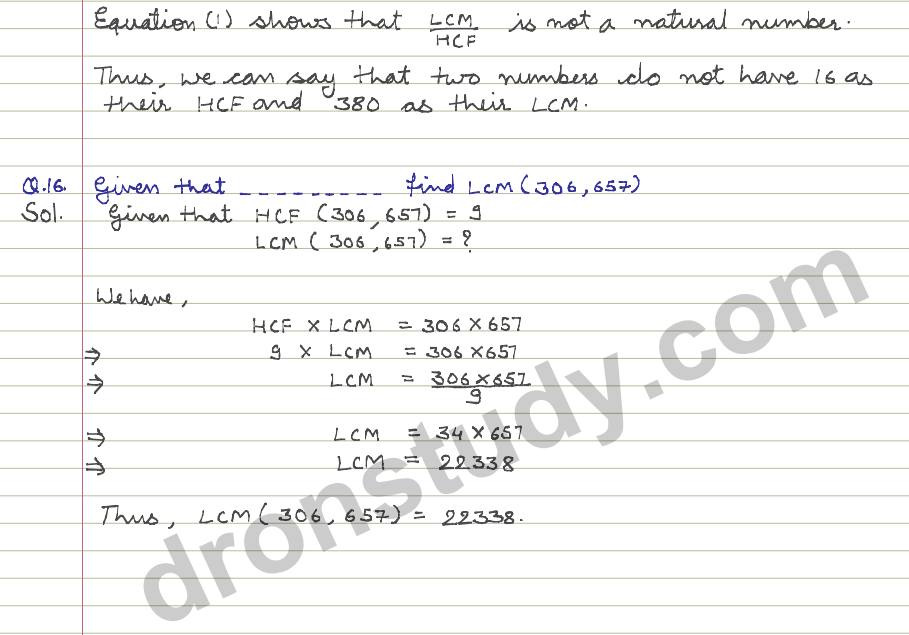 Equation (1) shows that LCM/HCF is not a natural number.
Thus, we can say that two numbers do not have 16 as
their HCF and 380 as their LCM.
Q.16. Given that _ _ _ _ _ _ _ _ _ find LCM (306,657)
Sol. Given that HCF (306,657) = 9
LCM (306,657) = ?
We have,
HCF × LCM = 306 × 657
⇒ 9 × LCM = 306 × 657
⇒ LCM = 306 × 657 / 9
⇒ LCM = 34 × 657
⇒ LCM = 22338
Thus, LCM (306, 657) = 22338.
dronstudy.com